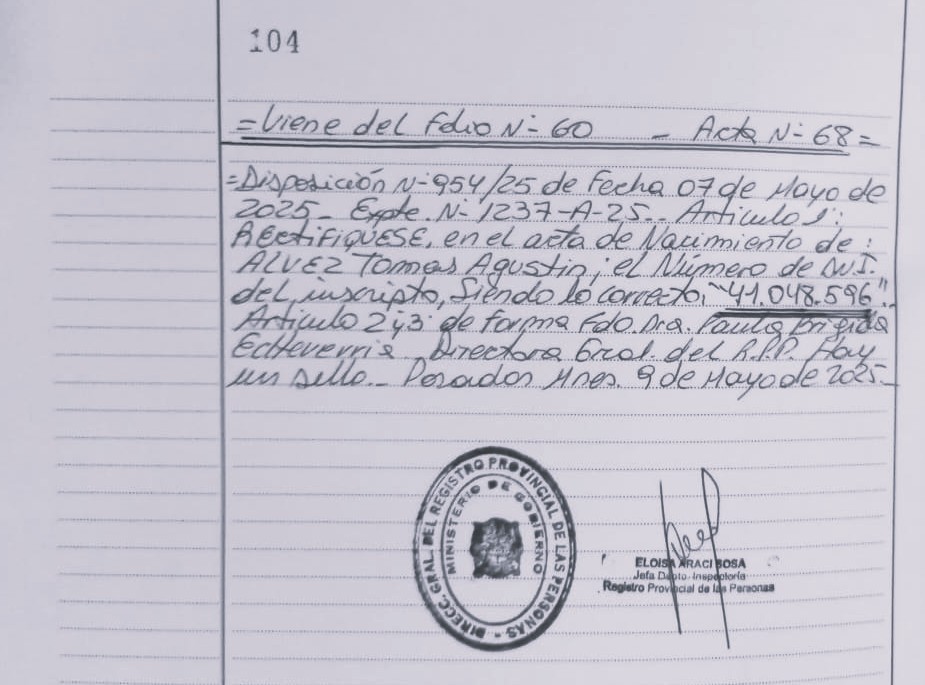 104
=Viene del Folio N-60 - Acta N-68=
=Disposición N-954/25 de Fecha 07 de Mayo de
2025_ Expte. N- 1237-A-25_. Articulo 1:
RECtiFIQUESE, en el acta de Nacimiento de:
ALVEZ Tomas Agustin; el Número de D.N.I.
del inscripto, Siendo lo correcto, "41.048.596".
Articulo 2 y 3 de forma Fdo. Dra. Paula Brigida
Echeverria Directora Gral. del R.P.P. Hay
un sello._ Posadas Mnes. 9 de Mayo de 2025_
DIRECC. GRAL. DEL REGISTRO PROVINCIAL DE LAS PERSONAS -
MINISTERIO DE GOBIERNO
ELOISA ARACI SOSA
Jefa Dpto. Inspectoría
Registro Provincial de las Personas